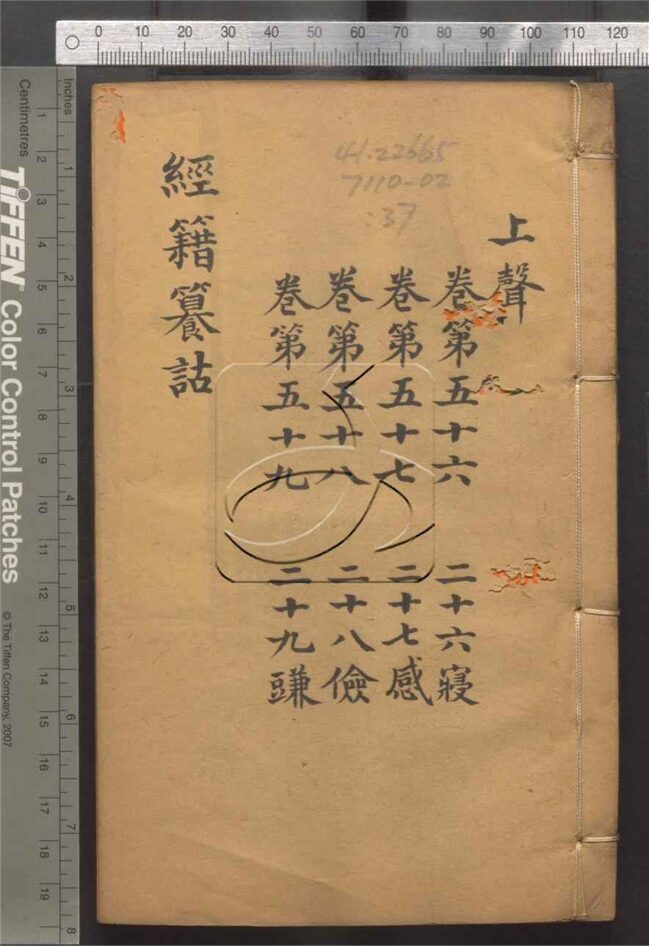 0 10 20 30 40 50 60 70 80 90 100 110 120
Centimetres
Inches
1 2 3 4 5 6 7 8 9 10 11 12 13 14 15 16 17 18 19
1 2 3 4 5 6 7 8
TIFFEN Color Control Patches
© The Tiffen Company, 2007
7110-02
:37
上聲
卷第五十六 二十六寢
卷第五十七 二十七感
卷第五十八 二十八儉
卷第五十九 二十九豏
經籍籑詁